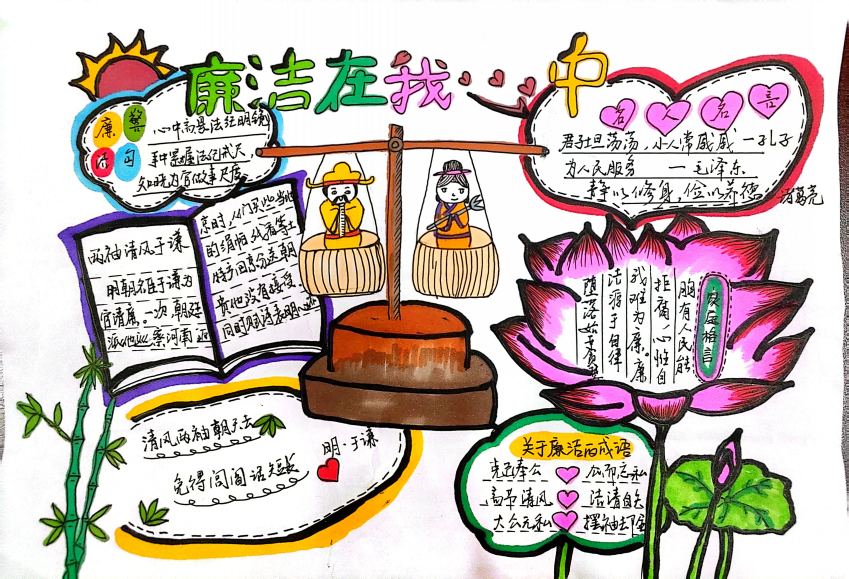 廉洁在我心中
廉洁
警句
心中高悬法纪明镜
手中紧握法纪戒尺
知晓为官做事尺度
名人名言
君子坦荡荡，小人常戚戚 —孔子
为人民服务 —毛泽东
静以修身，俭以养德 诸葛亮
两袖清风于谦
明朝名臣于谦为
官清廉，一次，朝廷
派他巡察河南 返
京时，人们买些当地
的绢帕
特产回京分送朝
贵他没有接受
同时
家庭格言
胸有人民能
拒腐，心性自
我难为廉。廉
洁源于自律
堕落始于贪
清风两袖朝天去
免得闾阎话短长
明·于谦
关于廉洁的成语
克己奉公 公而忘私
高节清风 洁清自矢
大公无私 摆袖却金